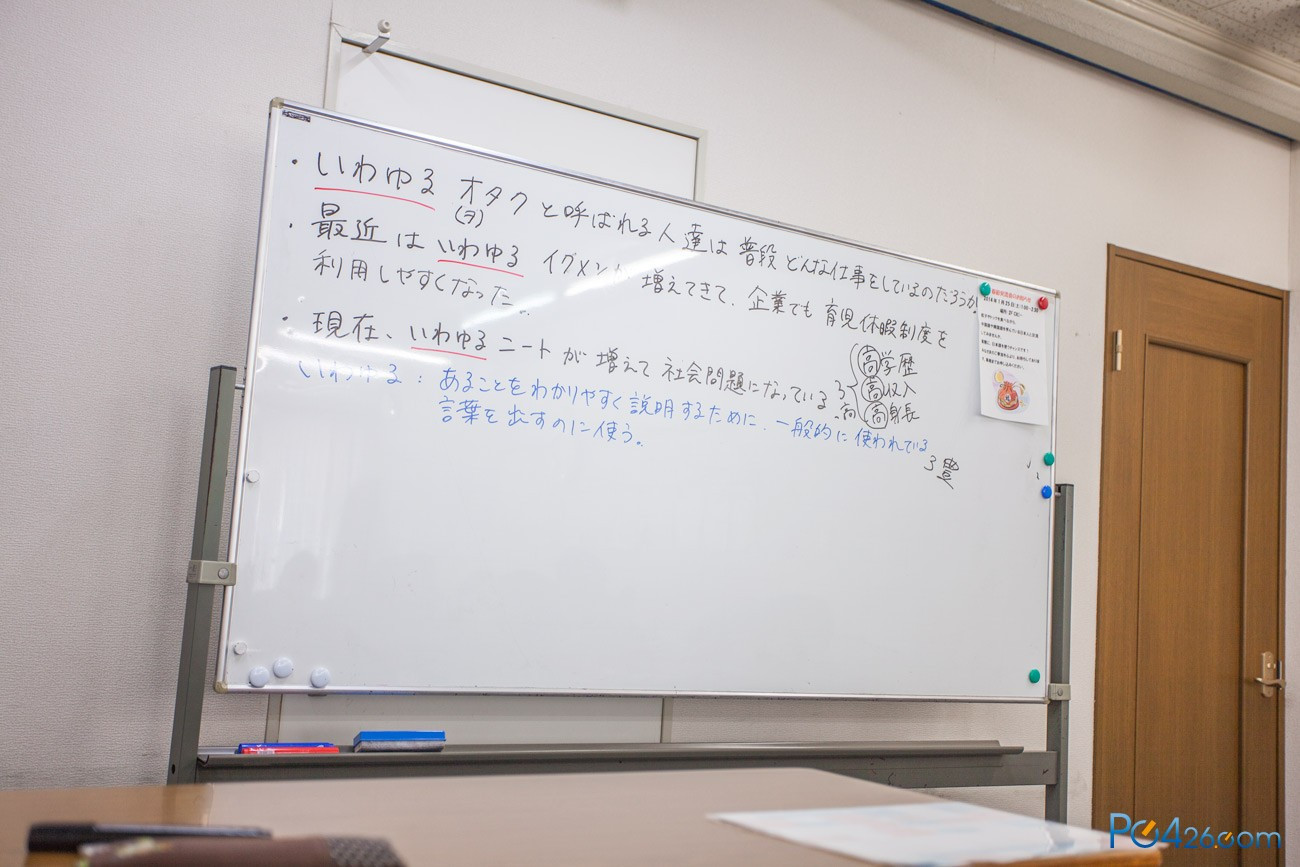 ・いわゆる オタク と呼ばれる人達は 普段 どんな仕事をしているのだろうか
(ヲ)
・最近は いわゆる イクメンが 増えてきて、企業でも 育児休暇制度を
利用しやすくなった。
・現在、いわゆる ニートが 増えて 社会問題になっている
3高
高学歴
高収入
高身長
いわゆる:あることをわかりやすく説明するために、一般的に使われている
言葉を出すのに使う。
PC426.com